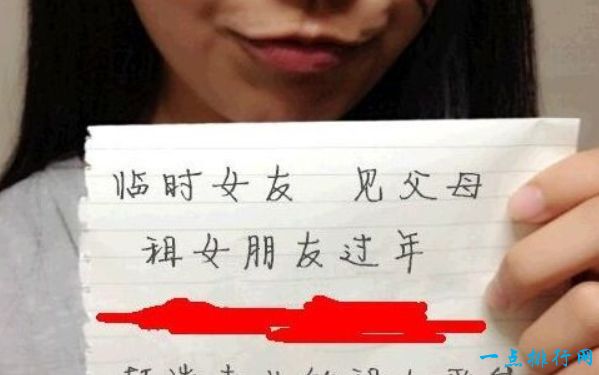 临时女友 见父母
租女朋友过年
一点排行网